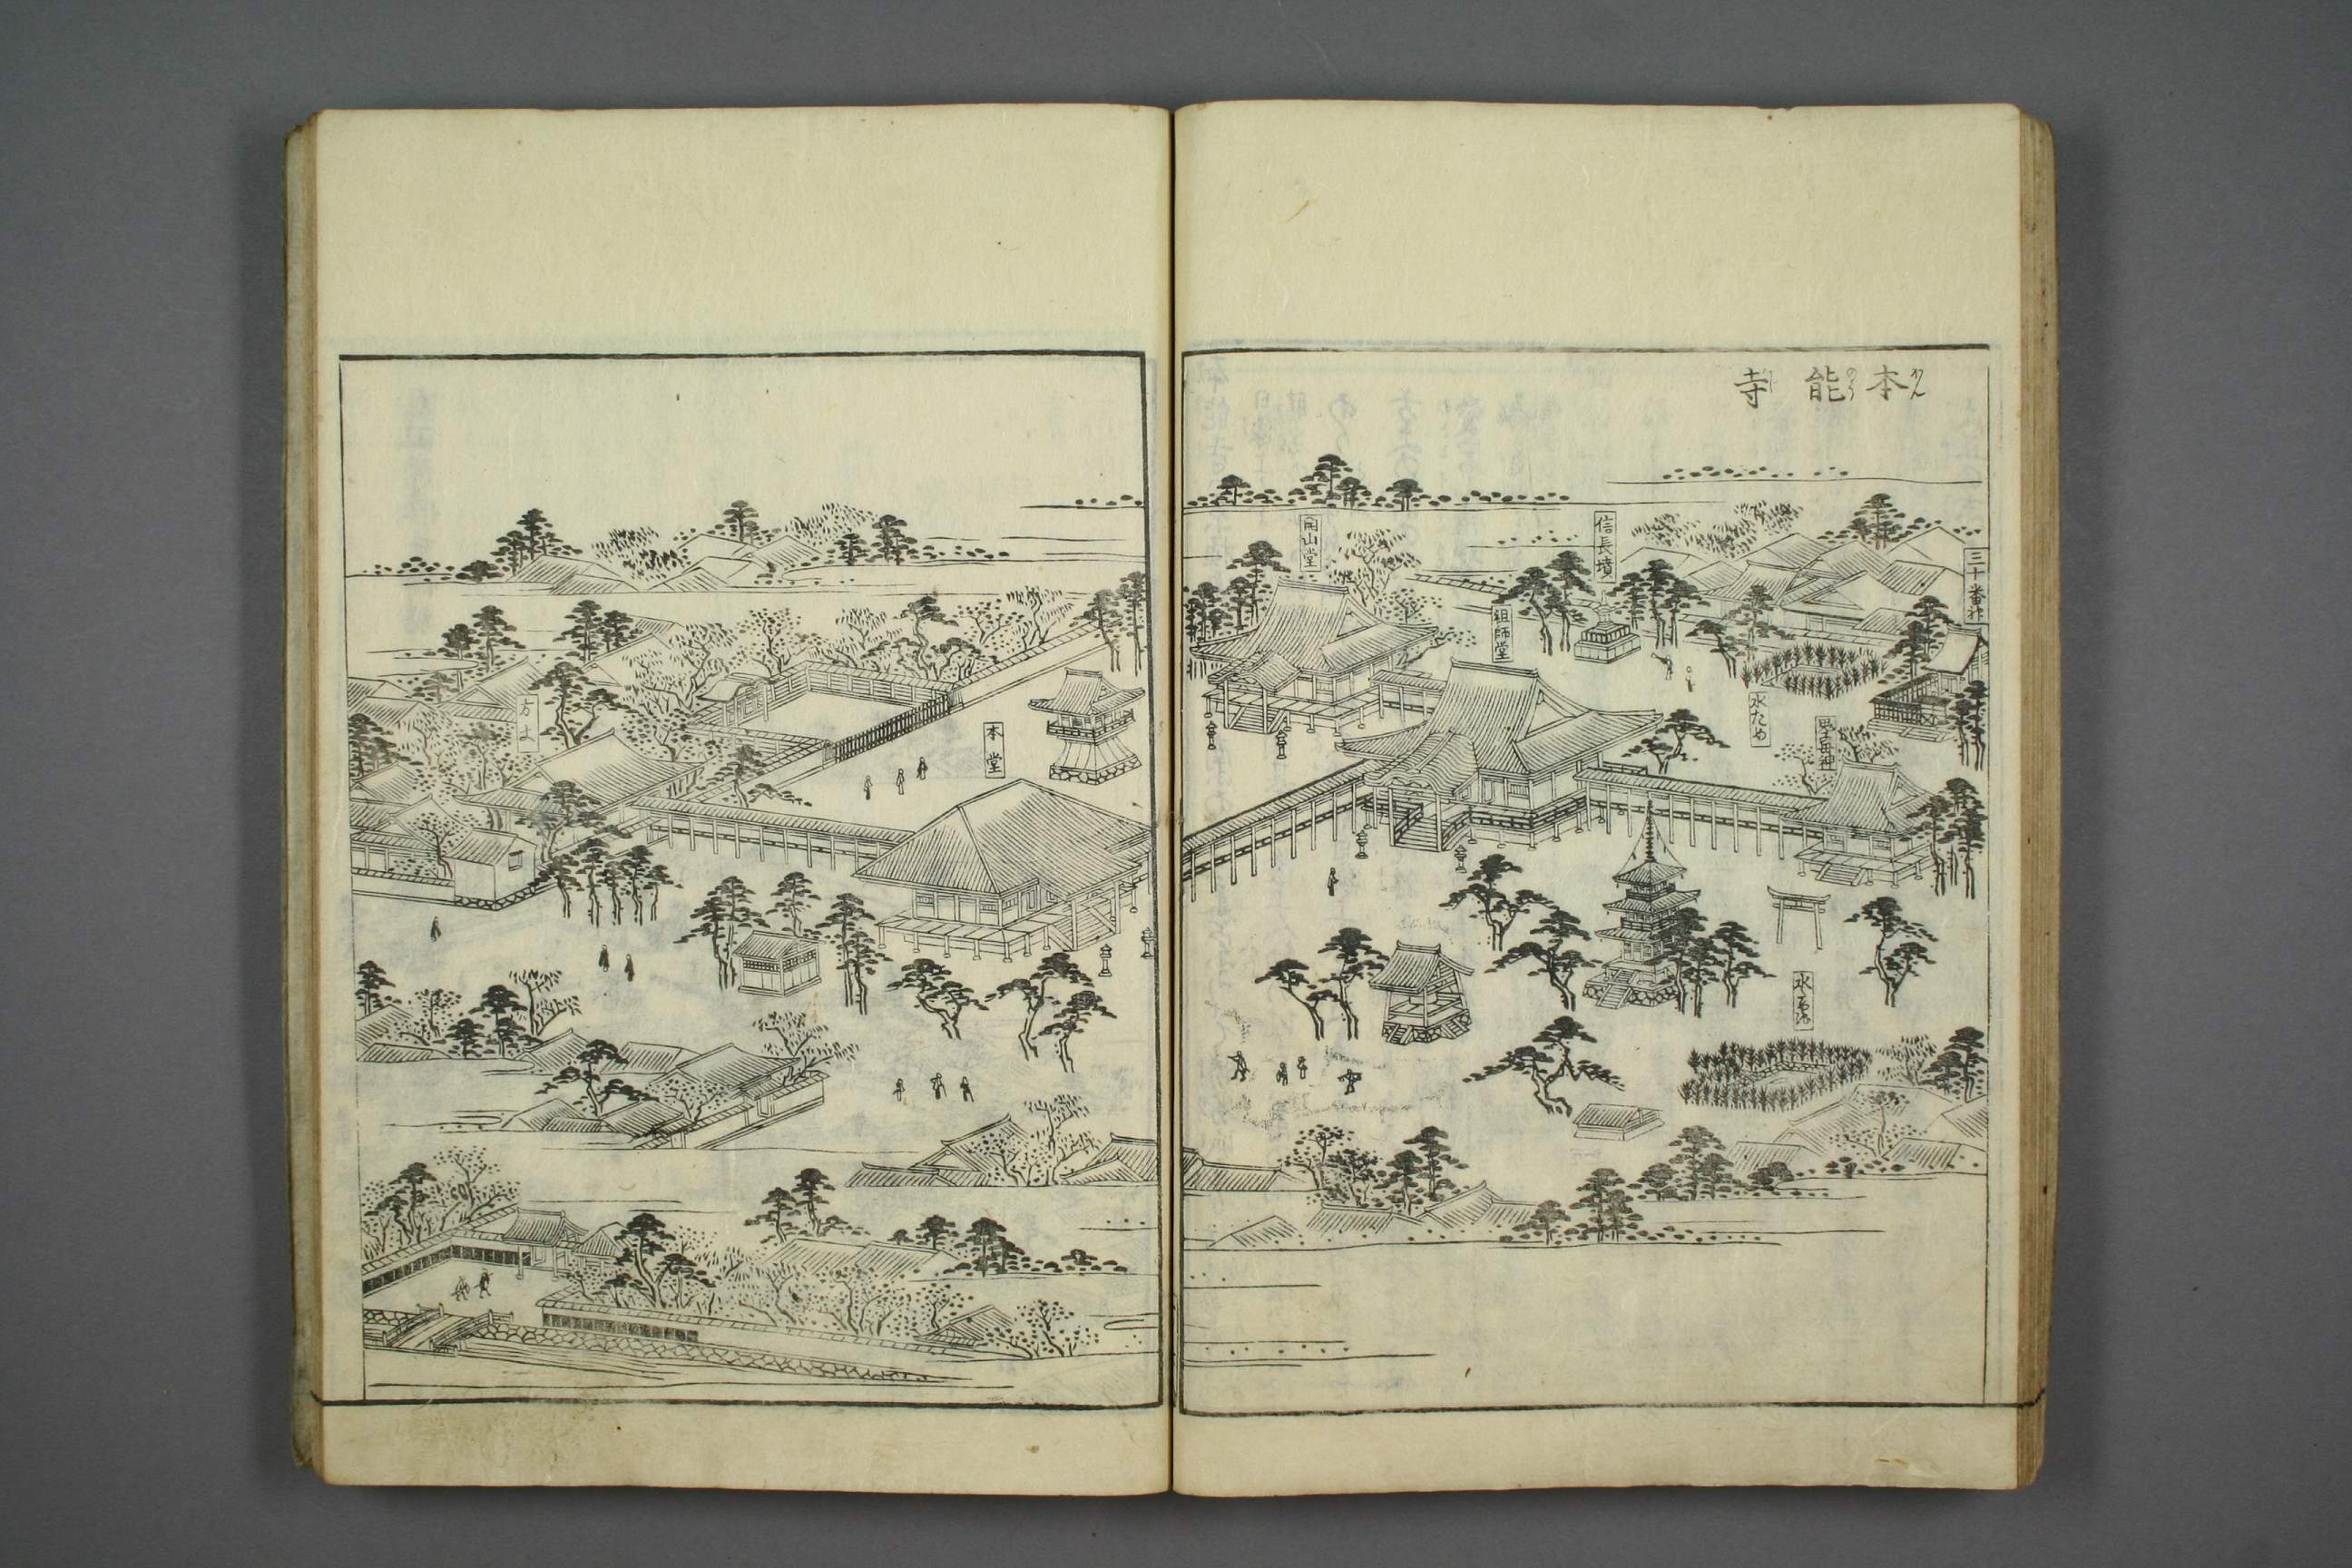 本能寺
三十番神
信長墳
開山堂
祖師堂
水ため
鬼子母神
水ため
本堂
方丈